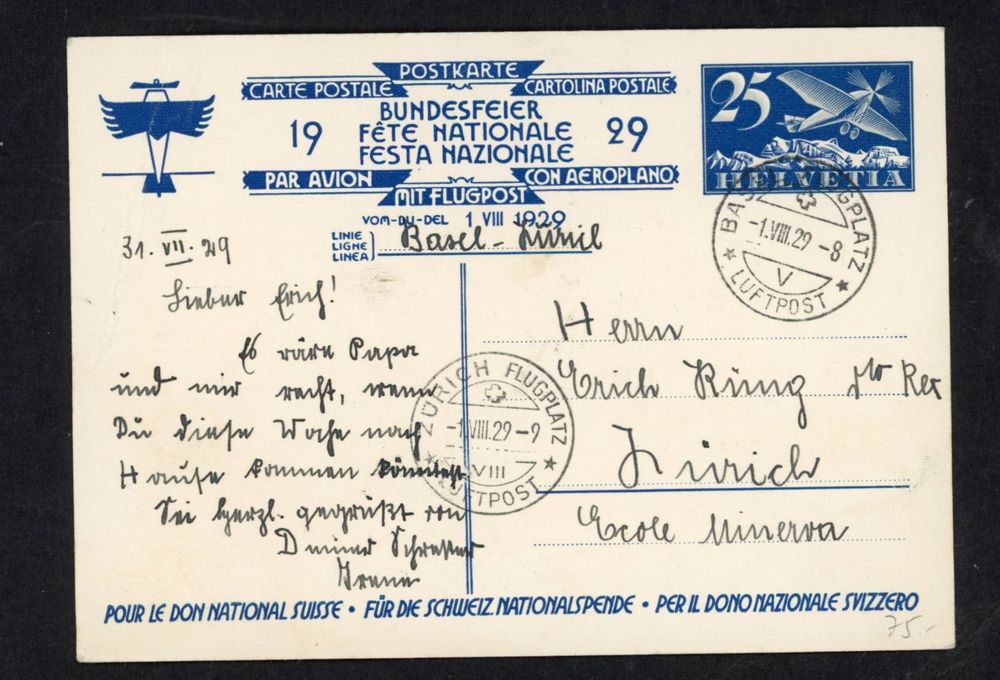 POSTKARTE
CARTE POSTALE CARTOLINA POSTALE
BUNDESFEIER
19 FÊTE NATIONALE 29
FESTA NAZIONALE
PAR AVION CON AEROPLANO
MIT FLUGPOST
VOM-DU-DEL 1 VIII 1929
LINIE
LIGNE
LINEA
Basel - Zürich
25
HELVETIA
BASEL FLUGPLATZ
-1.VIII.29-8
V
LUFTPOST
31. VII. 29
Lieber Erich!
Es wäre Papa
und mir recht, wenn
Du diese Woche nach
Hause kommen könntest
Sei herzl. gegrüßt von
Deiner Schwester
Irene
ZÜRICH FLUGPLATZ
-1.VIII.29-9
VIII
LUFTPOST
Herrn
Erich Küng
Zürich
Ecole Minerva
POUR LE DON NATIONAL SUISSE • FÜR DIE SCHWEIZ. NATIONALSPENDE • PER IL DONO NAZIONALE SVIZZERO
75.-